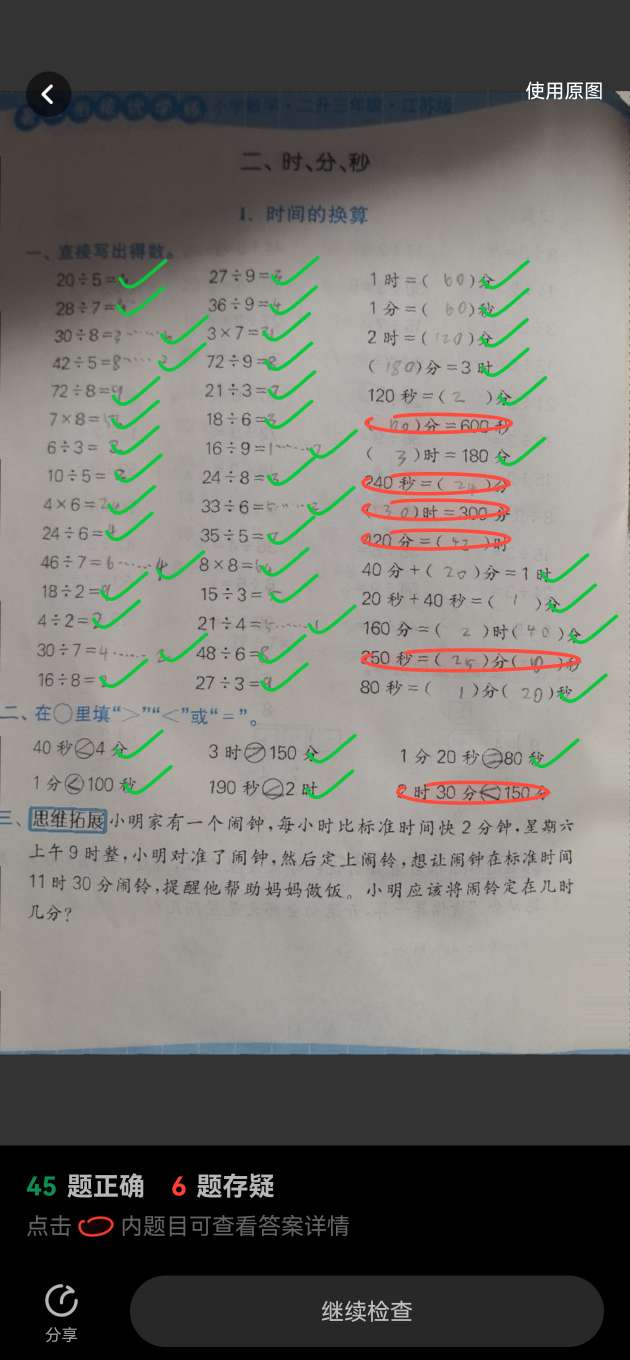 使用原图
小学数学·二升三年级·江苏版
二、时、分、秒
1. 时间的换算
一、直接写出得数。
20÷5= 27÷9=3 1时=(60)分
28÷7= 36÷9=4 1分=(60)秒
30÷8=3……6 3×7=21 2时=(120)分
42÷5=8……2 72÷9=8 (180)分=3时
72÷8=9 21÷3=7 120秒=(2)分
7×8= 18÷6=3 ( )分=600秒
6÷3= 16÷9=1……7 (3)时=180分
10÷5= 24÷8=3 240秒=(24)分
4×6=24 33÷6=5……3 (30)时=300分
24÷6=4 35÷5=7 420分=(42)时
46÷7=6……4 8×8=64 40分+(20)分=1时
18÷2=9 15÷3=5 20秒+40秒=(1)分
4÷2=2 21÷4=5……1 160分=(2)时(40)分
30÷7=4……2 48÷6=8 250秒=(25)分( )秒
16÷8=2 27÷3=9 80秒=(1)分(20)秒
二、在○里填“>”“<”或“=”。
40秒<4分 3时>150分 1分20秒=80秒
1分<100秒 190秒<2时 2时30分<150分
三、思维拓展 小明家有一个闹钟,每小时比标准时间快2分钟,星期六
上午9时整,小明对准了闹钟,然后定上闹铃,想让闹钟在标准时间
11时30分闹铃,提醒他帮助妈妈做饭。小明应该将闹铃定在几时
几分?
45 题正确 6 题存疑
点击 内题目可查看答案详情
分享
继续检查